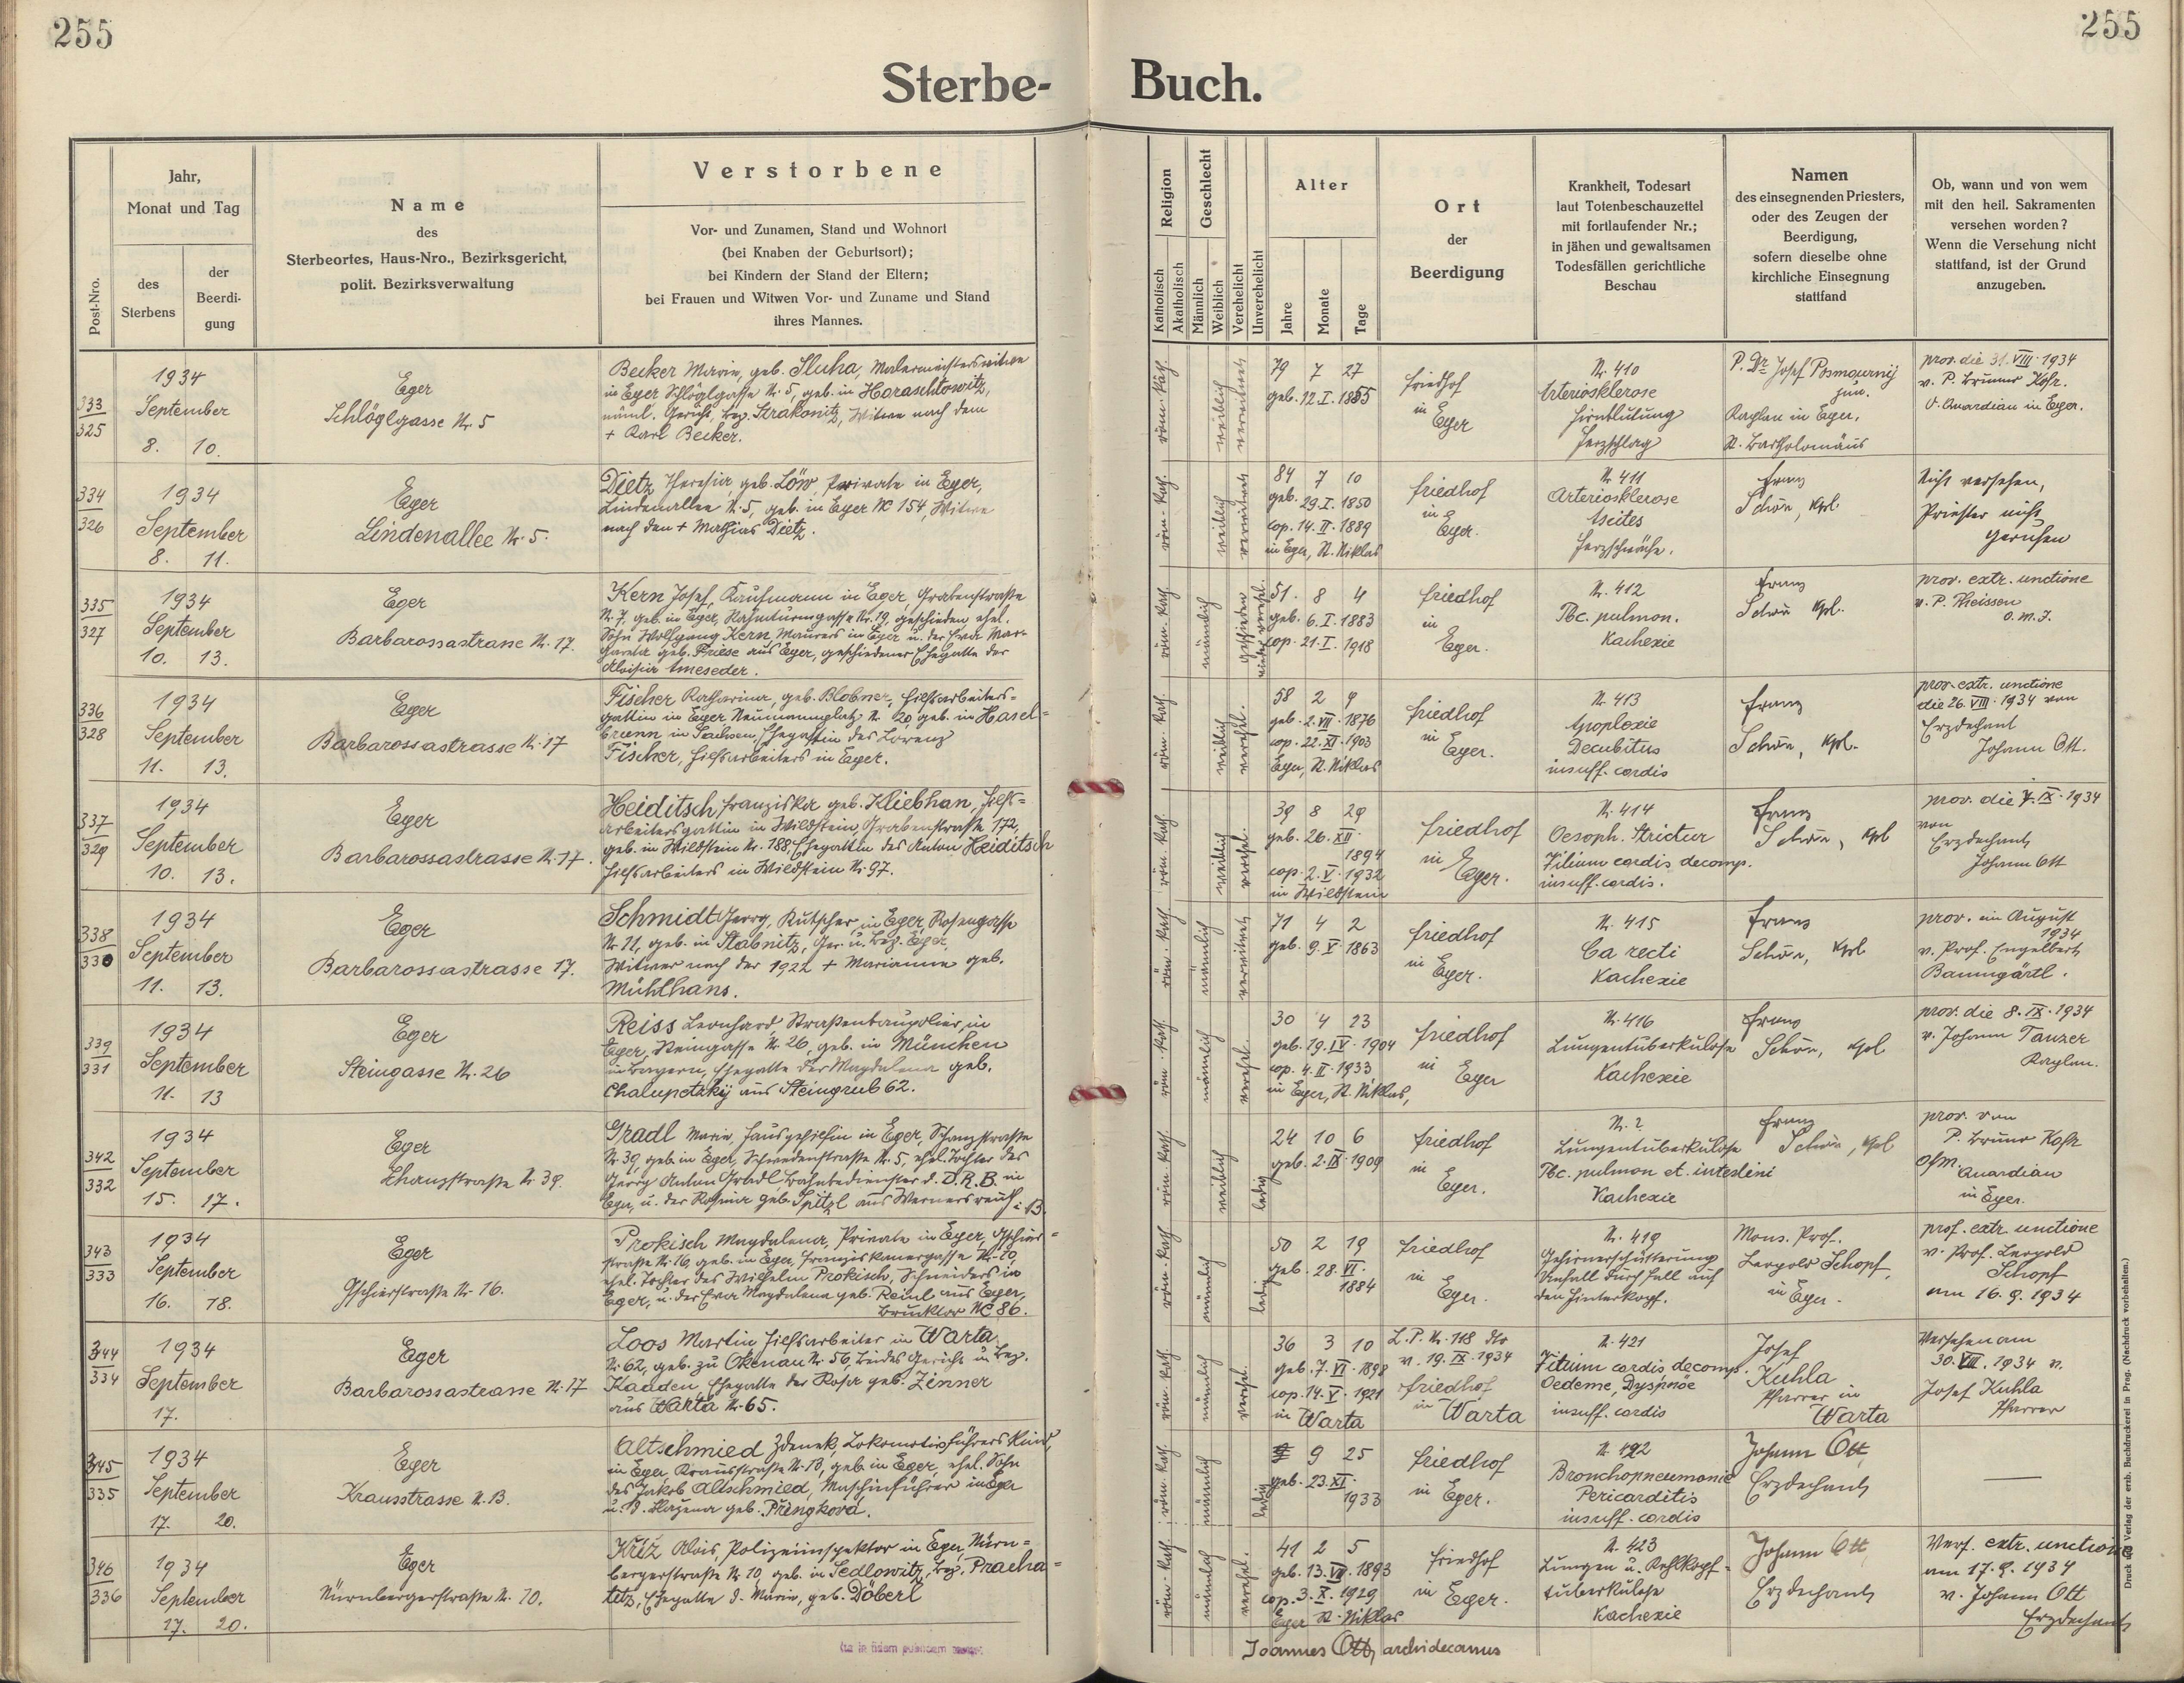 255
255
Sterbe-
Buch.
Post-Nro.
Jahr,
Monat und Tag
des
Sterbens
der
Beerdi-
gung
Name
des
Sterbeortes, Haus-Nro., Bezirksgericht,
polit. Bezirksverwaltung
Verstorbene
Vor- und Zunamen, Stand und Wohnort
(bei Knaben der Geburtsort);
bei Kindern der Stand der Eltern;
bei Frauen und Witwen Vor- und Zuname und Stand
ihres Mannes.
Religion
Katholisch
Akatholisch
Geschlecht
Männlich
Weiblich
Verehelicht
Unverehelicht
Alter
Jahre
Monate
Tage
Ort
der
Beerdigung
Krankheit, Todesart
laut Totenbeschauzettel
mit fortlaufender Nr.;
in jähen und gewaltsamen
Todesfällen gerichtliche
Beschau
Namen
des einsegnenden Priesters,
oder des Zeugen der
Beerdigung,
sofern dieselbe ohne
kirchliche Einsegnung
stattfand
Ob, wann und von wem
mit den heil. Sakramenten
versehen worden?
Wenn die Versehung nicht
stattfand, ist der Grund
anzugeben.
333
325
1934
September
8. 10.
Eger
Schlöglgasse Nr. 5
Becker Marie, geb. Sluha, Malermeisterswitwe
in Eger Schlöglgasse Nr. 5, geb. in Horaschtowitz,
Gericht, Bez. Strakonitz, Witwe nach dem
+ Karl Becker.
röm. kath.
weiblich
verwitwet
79 7 27
geb. 12. I. 1855
Friedhof
in
Eger
Nr. 410
Arteriosklerose
Hirnblutung
Herzschlag
P. Dr. Josef
jun.
Kaplan in Eger,
St. Bartholomäus
prov. die 31. VIII. 1934
v. P. Bruno Kofr.
O. Quardian in Eger.
334
326
1934
September
8. 11.
Eger
Lindenallee Nr. 5.
Dietz Theresia, geb. Löw, Private in Eger,
Lindenallee Nr. 5, geb. in Eger NC 154, Witwe
nach dem + Mathias Dietz.
röm. kath.
weiblich
verwitwet
84 7 10
geb. 29. I. 1850
cop. 14. II. 1889
in Eger, St. Niklas
Friedhof
in
Eger.
Nr. 411
Arteriosklerose
Ascites
Herzschwäche.
Franz
Schön, Kpl.
Nicht versehen,
Priester nicht
gerufen
335
327
1934
September
10. 13.
Eger
Barbarossastrasse Nr. 17.
Kern Josef, Kaufmann in Eger, Grabenstraße
Nr. 7, geb. in Eger, Nr. 19, geschieden ehel.
Sohn Wolfgang Kern, Maurers in Eger u. der Eva Mar-
gareta geb. Friese aus Eger, geschiedener Ehegatte der
Aloisia Ameseder.
röm. kath.
männlich
geschieden
51. 8 4
geb. 6. I. 1883
cop. 21. I. 1918
Friedhof
in
Eger.
Nr. 412
Tbc. pulmon.
Kachexie
Franz
Schön Kpl.
prov. extr. unctione
v. P. Theissen
O. M. I.
336
328
1934
September
11. 13.
Eger
Barbarossastrasse Nr. 17
Fischer Katharina, geb. Blobner, Hilfsarbeiters-
gattin in Eger, Neumannplatz Nr. 20 geb. in Hasel-
brunn in Sachsen, Ehegattin des Lorenz
Fischer, Hilfsarbeiters in Eger.
röm. kath.
weiblich
verehel.
58 2 9
geb. 2. VII. 1876
cop. 22. XI. 1903
Eger, St. Niklas
Friedhof
in
Eger.
Nr. 413
Apoplexie
Decubitus
insuff. cordis
Franz
Schön, Kpl.
prov. extr. unctione
die 26. VIII. 1934 von
Erzdechant
Johann Ott.
337
329
1934
September
10. 13.
Eger
Barbarossastrasse Nr. 17.
Heiditsch Franziska geb. Kliebhan, Hilfs-
arbeitersgattin in Wildstein, Grabenstraße 172,
geb. in Wildstein Nr. 188, Ehegattin des Anton Heiditsch
Hilfsarbeiters in Wildstein Nr. 97.
röm. kath.
weiblich
verehel.
39 8 29
geb. 26. XII.
1894
cop. 2. V. 1932
in Wildstein
Friedhof
in
Eger.
Nr. 414
Oesoph. Strictur
Vitium cordis decomp.
insuff. cordis.
Franz
Schön, Kpl
prov. die 7. IX. 1934
von
Erzdechant
Johann Ott
338
330
1934
September
11. 13.
Eger
Barbarossastrasse 17.
Schmidt Georg, Kutscher, in Eger, Rosengasse
Nr. 11, geb. in Stabnitz, Ger. u. Bez. Eger,
Witwer nach der 1922 + Marianne geb.
Mühlhans.
röm. kath.
männlich
verwitwet
71 4 2
geb. 9. V. 1863
Friedhof
in
Eger.
Nr. 415
Ca recti
Kachexie
Franz
Schön, Kpl
prov. im August
1934
v. Prof. Engelbert
Baumgärtl.
339
331
1934
September
11. 13
Eger
Steingasse Nr. 26
Reiss Leonhard, Straßenbaupolier, in
Eger, Steingasse Nr. 26, geb. in München
in Bayern, Ehegatte der Magdalena geb.
Chalupetzky aus Steingrub 62.
röm. kath.
männlich
verehel.
30 4 23
geb. 19. IV. 1904
cop. 4. II. 1933
in Eger, St. Niklas,
Friedhof
in
Eger
Nr. 416
Lungentuberkulose
Kachexie
Franz
Schön, Kpl
prov. die 8. IX. 1934
v. Johann Tanzer
Kaplan.
342
332
1934
September
15. 17.
Eger
Schanzstraße Nr 39.
Gradl Marie, Hausgehilfin in Eger, Schanzstraße
Nr 39, geb. in Eger, Schwedenstraße Nr. 5, ehel. Tochter des
Georg Anton Gradl, Bahnbediensteter d. D. R. B. in
Eger, u. der Rosina geb. Spitzl aus Wernersreuth i. B.
röm. kath.
weiblich
ledig
24 10 6
geb. 2. IX. 1909
Friedhof
in
Eger.
Nr. ?
Lungentuberkulose
Tbc. pulmon et. intestini
Kachexie
Franz
Schön, Kpl
prov. von
P. Bruno Kofr
Ofm. Quardian
in Eger.
343
333
1934
September
16. 18.
Eger
Gschierstraße Nr 16.
Prokisch Magdalena, Private in Eger, Gschier-
straße Nr. 16, geb. in Eger, Franziskanergasse Nr. 20,
ehel. Tochter des Wilhelm Prokisch, Schneiders in
Eger, u. der Eva Magdalena geb. Reinl aus Eger,
Bruktor NC 86.
röm. kath.
männlich
ledig
50 2 19
geb. 28. VI.
1884
Friedhof
in
Eger.
Nr. 419
Gehirnerschütterung
Unfall durch Fall auf
den Hinterkopf.
Mons. Prof.
Leopold Schopf,
in Eger.
prof. extr. unctione
v. Prof. Leopold
Schopf
am 16. 9. 1934
344
334
1934
September
17.
Eger
Barbarossastrasse Nr. 17
Loos Martin Hilfsarbeiter in Warta
Nr. 62, geb. zu Okenau Nr. 56, beides Gericht u. Bez.
Kaaden, Ehegatte der Rosa geb. Zinner
aus Warta Nr. 65.
röm. kath.
männlich
verehel.
36 3 10
geb. 7. VI. 1898
cop. 14. V. 1921
in Warta
L. P. Nr. 118
v. 19. IX. 1934
Friedhof
in Warta
Nr. 421
Vitium cordis decomp.
Oedeme, Dyspnöe
insuff. cordis
Josef
Kuhla
Pfarrer in
Warta
Versehen am
30. VIII. 1934 v.
Josef Kuhla
Pfarrer
345
335
1934
September
17. 20.
Eger
Krausstrasse Nr. 13.
Altschmied Zdenek, Lokomotivführers Kind,
in Eger, Krausstraße Nr. 13, geb. in Eger, ehel. Sohn
des Jakob Altschmied, Maschinführer in Eger
u. d. Blažena geb. Přengková.
röm. kath.
männlich
ledig
9 25
geb. 23. XI.
1933
Friedhof
in Eger.
Nr. 422
Bronchopneumonie
Pericarditis
insuff. cordis
Johann Ott,
Erzdechant
346
336
1934
September
17. 20.
Eger
Nürnbergerstraße Nr. 10.
Křiž Alois, Polizeiinspektor in Eger, Nürn-
bergerstraße Nr 10, geb. in Sedlowitz, Bez. Pracha-
titz, Ehegatte d. Marie, geb. Döberl
röm. kath.
männlich
verehel.
41 2 5
geb. 13. VII. 1893
cop. 3. X. 1929
Eger St. Niklas
Friedhof
in Eger.
Nr. 423
Lungen u. Kehlkopf-
tuberkulose
Kachexie
Johann Ott
Erzdechant
Vers. extr. unctione
am 17. 9. 1934
v. Johann Ott
Erzdechant
Joannes Ott, archidecanus
Druck und Verlag der erzb. Buchdruckerei in Prag. (Nachdruck vorbehalten.)